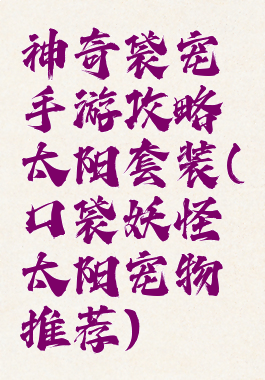 神奇袋宠
手游攻略
太阳套装(
口袋妖怪
太阳宠物
推荐)